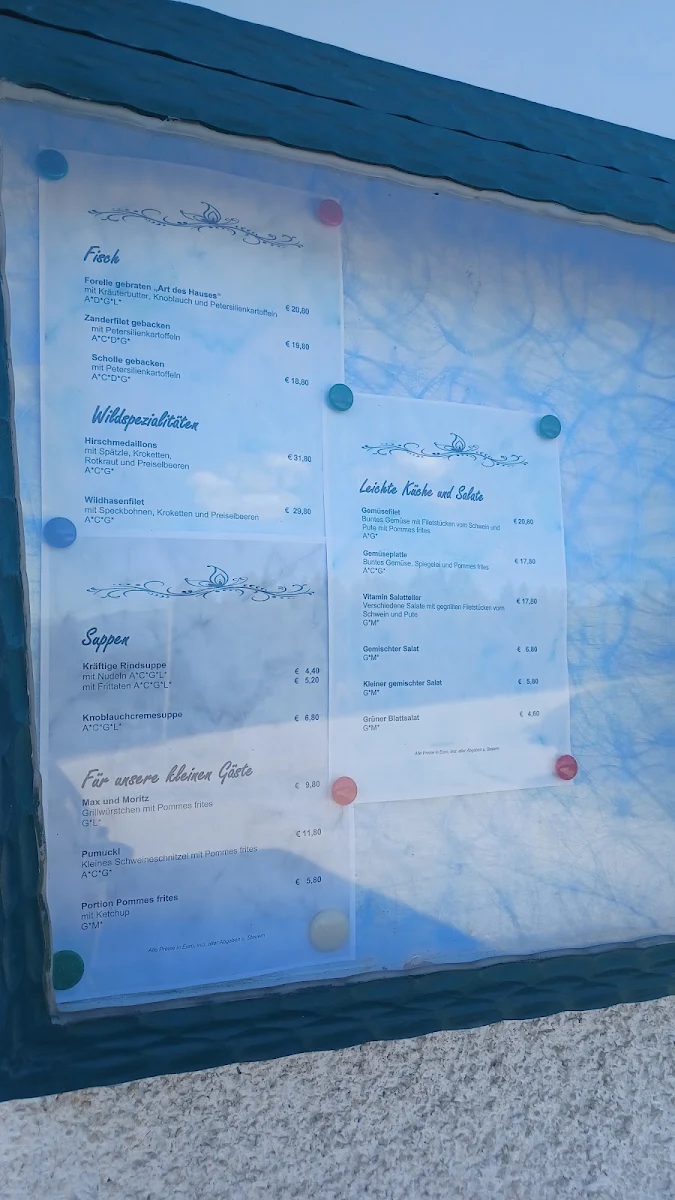 Fisch
Forelle gebraten „Art des Hauses"
mit Kräuterbutter, Knoblauch und Petersilienkartoffeln € 20,80
A*D*G*L*
Zanderfilet gebacken
mit Petersilienkartoffeln € 19,80
A*C*D*G*
Scholle gebacken
mit Petersilienkartoffeln € 18,80
A*C*D*G*
Wildspezialitäten
Hirschmedaillons
mit Spätzle, Kroketten, € 31,80
Rotkraut und Preiselbeeren
A*C*G*
Wildhasenfilet
mit Speckbohnen, Kroketten und Preiselbeeren € 29,80
A*C*G*
Suppen
Kräftige Rindsuppe
mit Nudeln A*C*G*L* € 4,40
mit Frittaten A*C*G*L* € 5,20
Knoblauchcremesuppe € 6,80
A*C*G*L*
Für unsere kleinen Gäste
Max und Moritz € 9,80
Grillwürstchen mit Pommes frites
G*L*
Pumuckl € 11,80
Kleines Schweineschnitzel mit Pommes frites
A*C*G*
Portion Pommes frites € 5,80
mit Ketchup
G*M*
Alle Preise in Euro, incl. aller Abgaben u. Steuern
Leichte Küche und Salate
Gemüsefilet
Buntes Gemüse mit Filetstücken vom Schwein und € 20,80
Pute mit Pommes frites
A*G*
Gemüseplatte
Buntes Gemüse, Spiegelei und Pommes frites € 17,80
A*C*G*
Vitamin Salatteller € 17,80
Verschiedene Salate mit gegrillten Filetstücken vom
Schwein und Pute
G*M*
Gemischter Salat € 6,80
G*M*
Kleiner gemischter Salat € 5,80
G*M*
Grüner Blattsalat € 4,60
G*M*
Alle Preise in Euro, incl. aller Abgaben u. Steuern